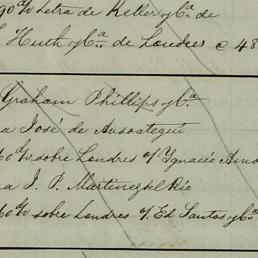 90 d/v Letra de Keller y Cª de
Huth y Cª de Londres @ 48
Graham Phillips y Cª
a José de Ansoategui
60 d/v sobre Londres o/ Ygnacio
a J. P. Martinez del Rio
60 d/v sobre Londres o/. Ed Santos y Cª